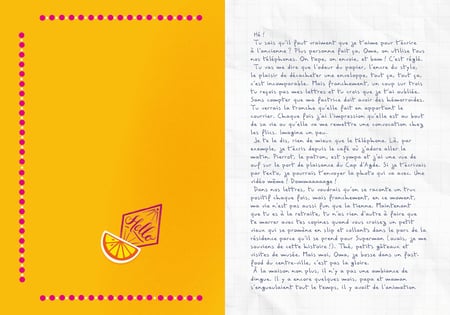 Hello
Hé !
Tu sais qu'il faut vraiment que je t'aime pour t'écrire
à l'ancienne ? Plus personne fait ça, Oma, on utilise tous
nos téléphones. On tape, on envoie, et bam ! C'est réglé.
Tu vas me dire que l'odeur du papier, l'encre du stylo,
le plaisir de décacheter une enveloppe, tout ça, tout ça,
c'est incomparable. Mais franchement, un coup sur trois
tu reçois pas mes lettres et tu crois que je t'ai oubliée.
Sans compter que ma factrice doit avoir des hémorroïdes.
Tu verrais la tronche qu'elle fait en apportant le
courrier. Chaque fois j'ai l'impression qu'elle est au bout
de sa vie ou qu'elle va me remettre une convocation chez
les flics. Imagine un peu.
Je te le dis, rien de mieux que le téléphone. Là, par
exemple, je t'écris depuis le café où j'adore aller le
matin. Pierrot, le patron, est sympa et j'ai une vue de
ouf sur le port de plaisance du Cap d'Agde. Si je t'écrivais
par texto, je pourrais t'envoyer la photo qui va avec. Une
vidéo même ! Dommaaaaage !
Dans nos lettres, tu voudrais qu'on se raconte un truc
positif chaque fois, mais franchement, en ce moment,
ma vie n'est pas aussi fun que la tienne. Maintenant
que tu es à la retraite, tu n'as rien d'autre à faire que
te marrer avec tes copines quand vous croisez un petit
vieux qui se promène en slip et collants dans le parc de la
résidence parce qu'il se prend pour Superman (ouais, je me
souviens de cette histoire !). Thé, petits gâteaux et
visites de musée. Mais moi, Oma, je bosse dans un fast-
food du centre-ville, c'est pas la gloire.
À la maison non plus, il n'y a pas une ambiance de
dingue. Il y a encore quelques mois, papa et maman
s'engueulaient tout le temps, il y avait de l'animation